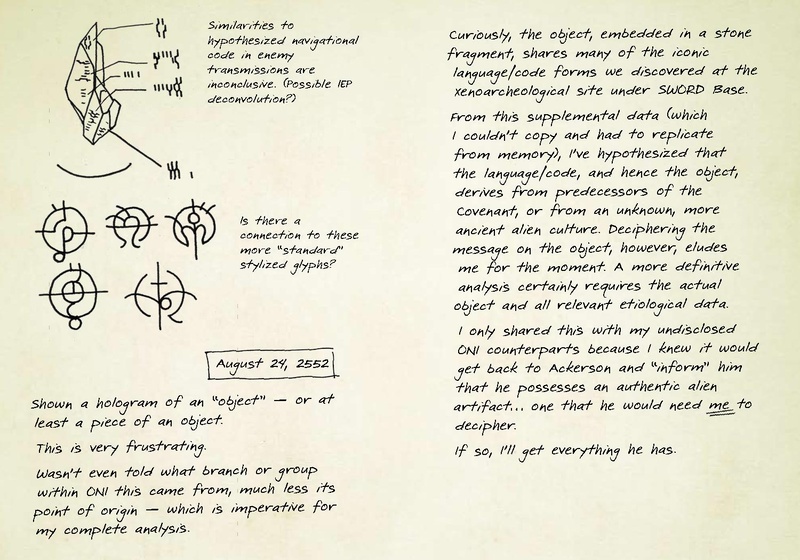 Similarities to
hypothesized navigational
code in enemy
transmissions are
inconclusive. (Possible IEP
deconvolution?)
Is there a
connection to these
more "standard"
stylized glyphs?
August 24, 2552
Shown a hologram of an "object" — or at
least a piece of an object.
This is very frustrating.
Wasn't even told what branch or group
within ONI this came from, much less its
point of origin — which is imperative for
my complete analysis.
Curiously, the object, embedded in a stone
fragment, shares many of the iconic
language/code forms we discovered at the
xenoarcheological site under SWORD Base.
From this supplemental data (which
I couldn't copy and had to replicate
from memory), I've hypothesized that
the language/code, and hence the object,
derives from predecessors of the
Covenant, or from an unknown, more
ancient alien culture. Deciphering the
message on the object, however, eludes
me for the moment. A more definitive
analysis certainly requires the actual
object and all relevant etiological data.
I only shared this with my undisclosed
ONI counterparts because I knew it would
get back to Ackerson and "inform" him
that he possesses an authentic alien
artifact... one that he would need me to
decipher.
If so, I'll get everything he has.